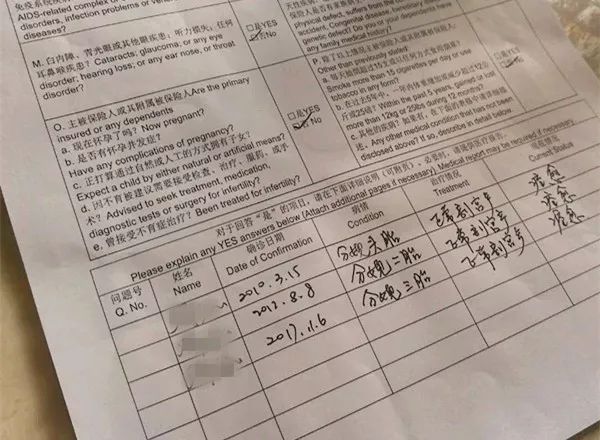 免疫系统疾
AIDS-related complex or
disorders, infection problems or vener
diseases?
M. 白内障、青光眼或其他眼疾、听力损失、任何
耳鼻喉疾患? Cataracts; glaucoma; or any eye
disorder; hearing loss; or any ear, nose, or throat
disorder?
□是YES
否No
O. 主被保险人或其附属被保险人Are the primary
insured or any dependents
a. 现在怀孕了吗? Now pregnant?
b. 是否有怀孕并发症?
Have any complications of pregnancy?
c. 正打算通过自然或人工的方式拥有子女?
Expect a child by either natural or artificial means?
d. 因不育被建议需要接受检查、治疗、服药、或手
术? Advised to seek treatment, medication,
diagnostic tests or surgery for infertility?
e. 曾接受不育症治疗? Been treated for infertility?
□是YES
否No
physical defect,
accident, Congenital disease, hereditary disease
any family medical history?
P. 除了以上情况主被保险人或其附属被保险人
Other than previously stated:
a. 每天抽烟超过15支或以任何方式使用烟草?
Smoke more than 15 cigarettes per day or use
tobacco in any form?
b. 在过去5年中,一年内体重增加或减少超过12公
斤或25磅? Within the past 5 years, gained or lost
more than 12kg or 25lbs during 12 months?
disclosed above? If so, describe in detail below.
对于回答“是”的项目,请在下面详细说明(可附页)。必要时,请提供医疗报告。
Please explain any YES answers below (Attach additional pages if necessary). Medical report may be required if necessary.
问题号 姓名 确诊日期 病情 治疗情况
Q. No. Name Date of Confirmation Condition Treatment Current Status
2010.3.15 分娩头胎 正常剖宫产 治愈
2012.8.8 分娩二胎 正常剖宫产 治愈
2017.11.6 分娩三胎 正常剖宫产 治愈